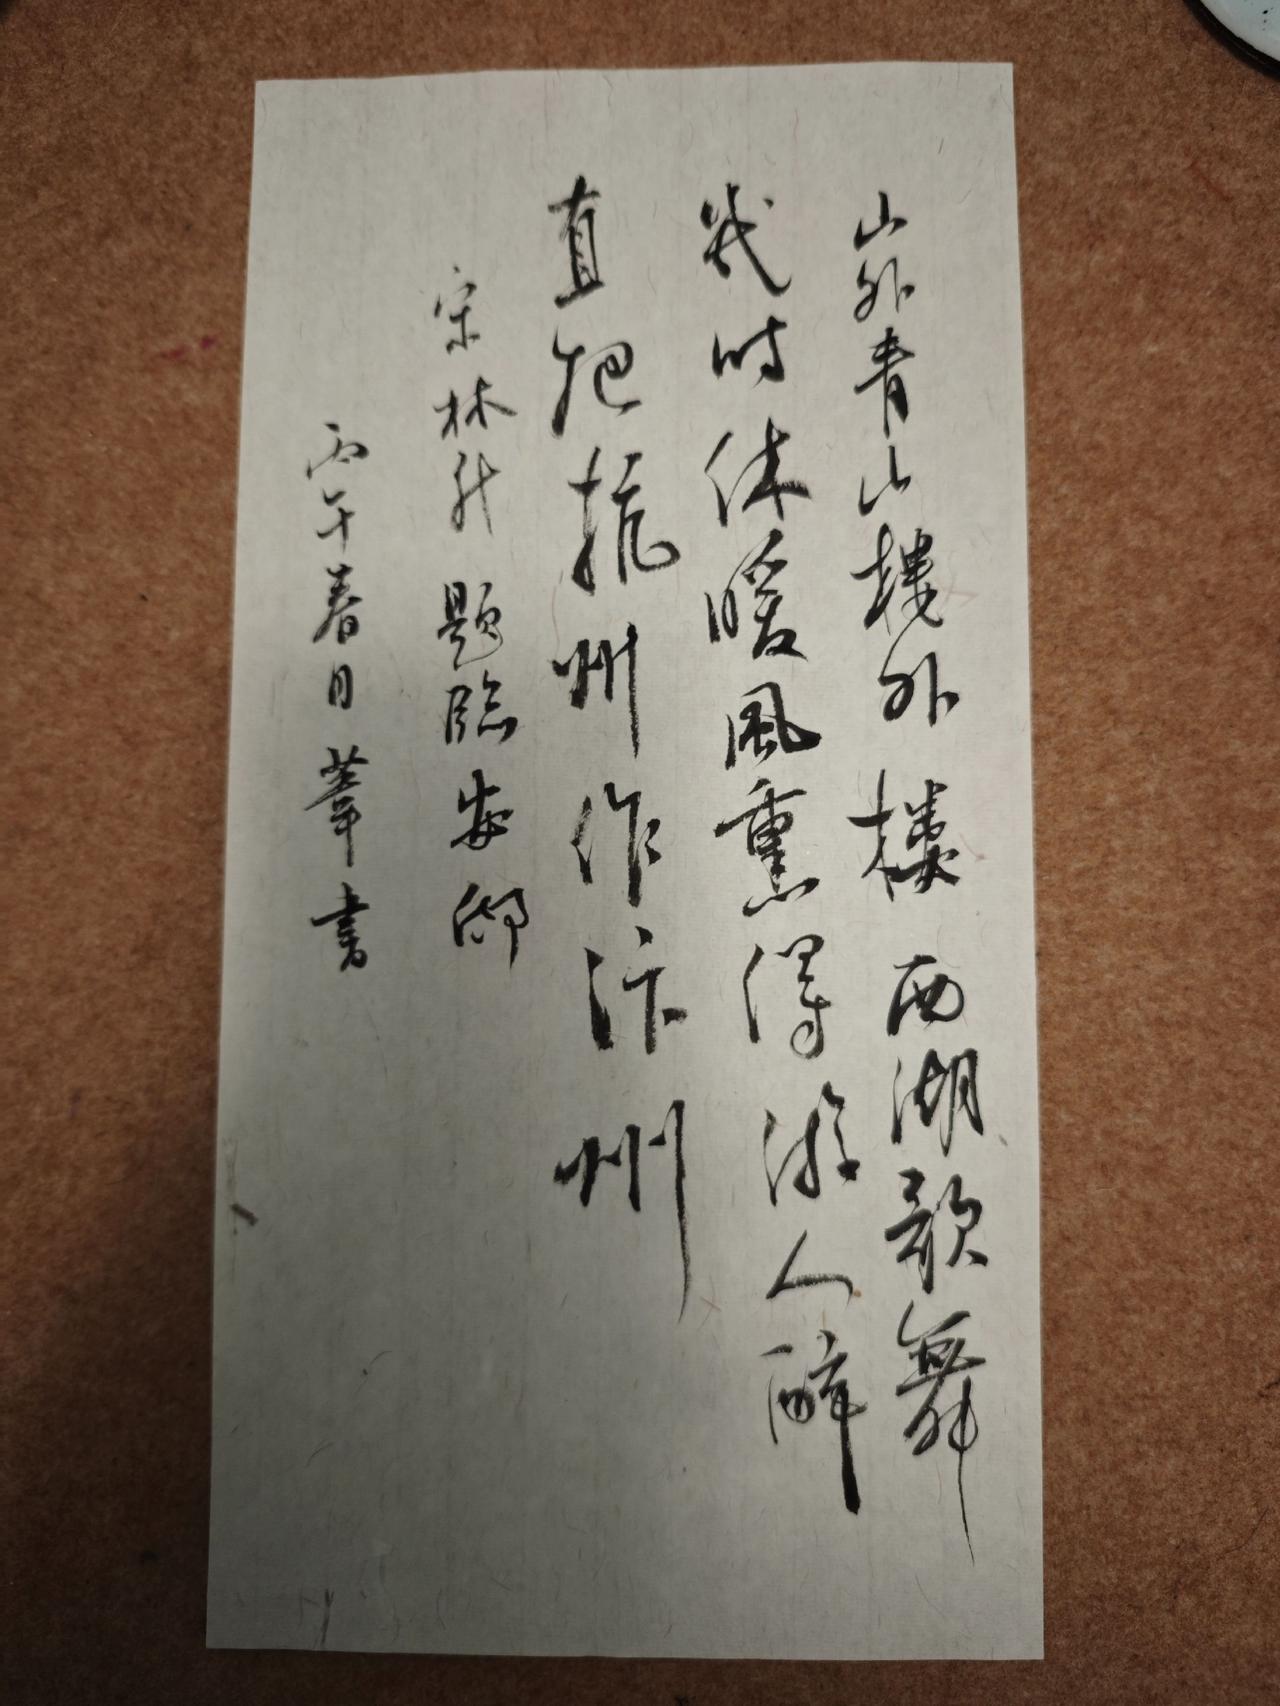 山外青山樓外樓西湖歌舞
幾時休暖風熏得游人醉
直把杭州作汴州
宋林升題臨安邸
丙午春日葦書